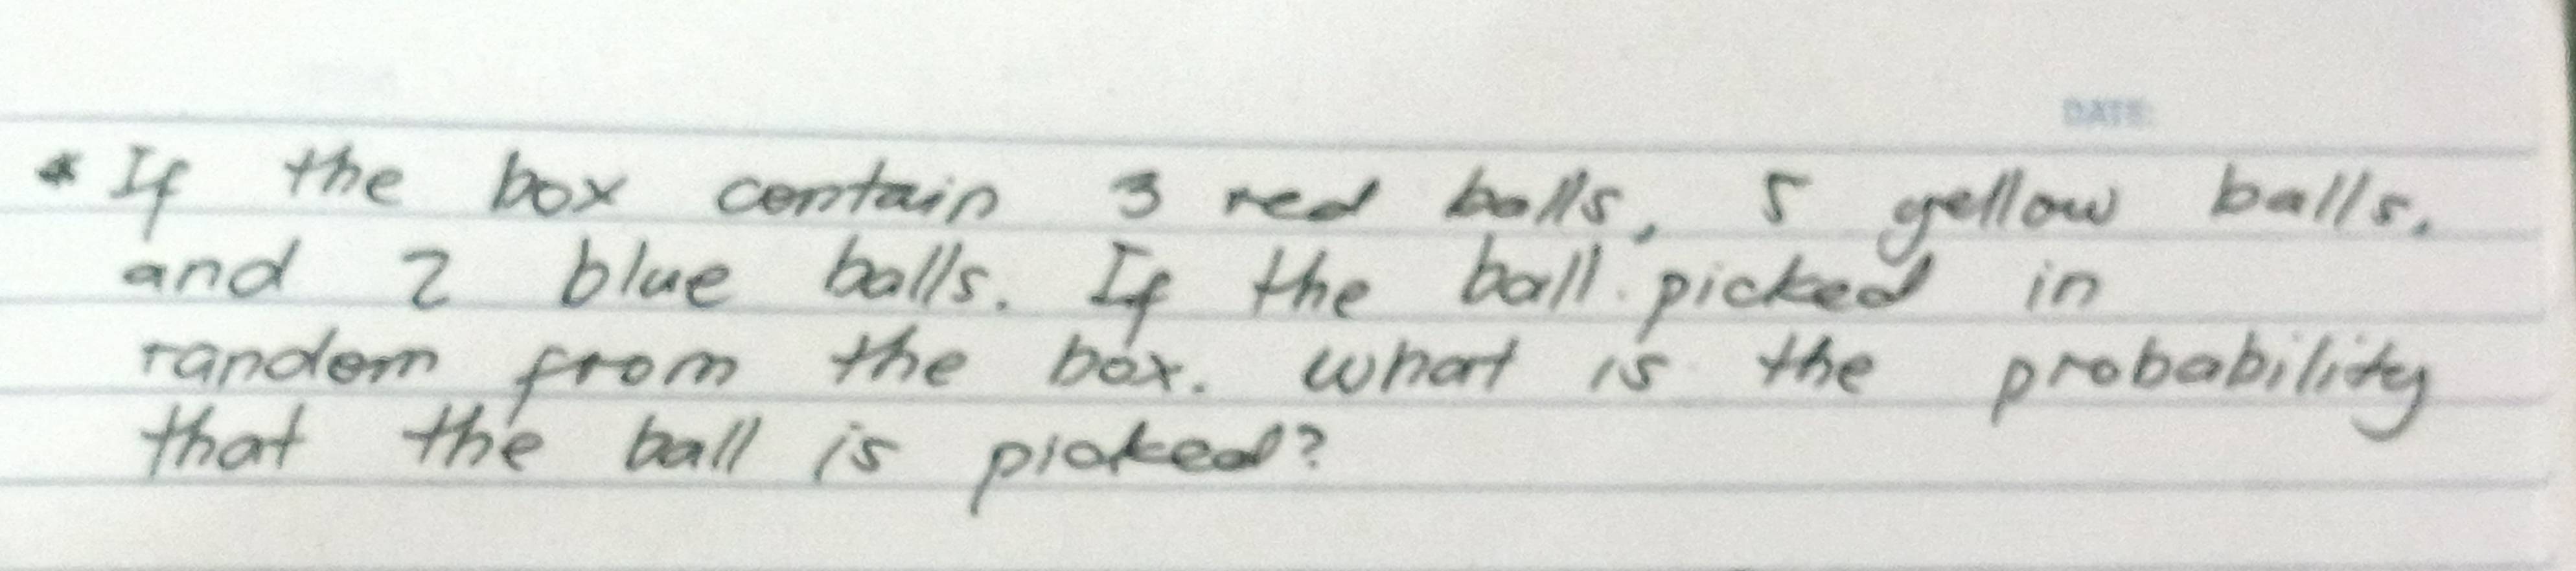 DATE:
* If the box contain 3 red balls, 5 yellow balls,
and 2 blue balls. If the ball picked in
random from the box. what is the probability
that the ball is picked?